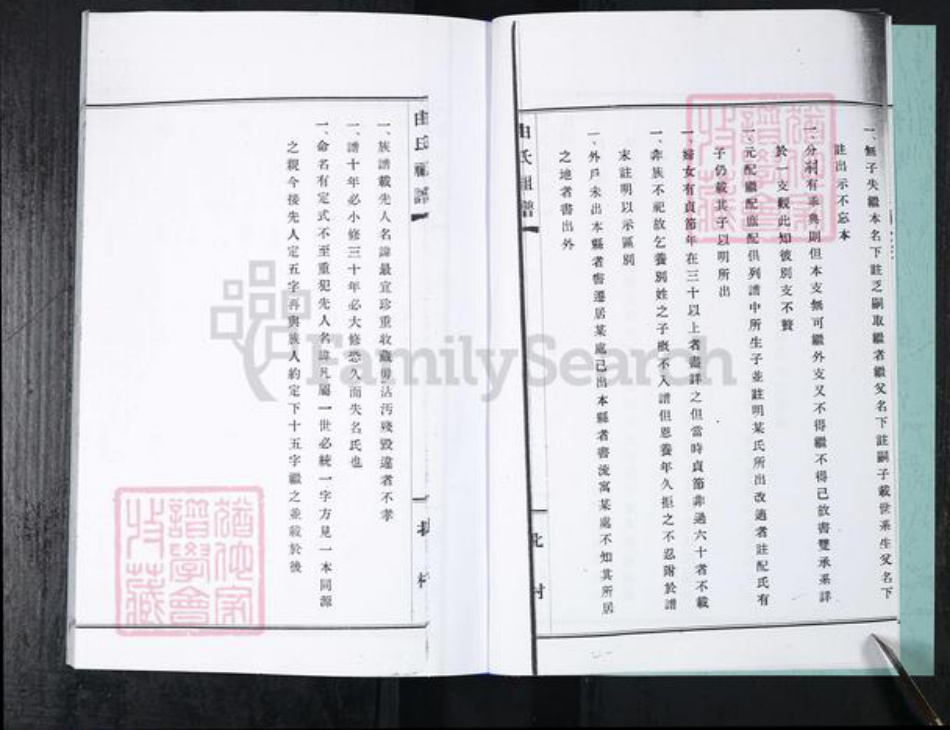 一、無子失繼本名下註乏嗣取繼者繼父名下註嗣子載世系生父名下
註出示不忘本
一、分有典則但本支無可繼外支又不得繼不得已故書雙承系詳
於一支觀此知彼別支不贅
一、元配繼配庶配俱列譜中所生子並註明某氏所出改適者註配氏有
子仍載其子以明所出
一、婦女有貞節年在三十以上者盡詳之但當時貞節非過六十者不載
一、非族不祀故乞養別姓之子概不入譜但恩養年久拒之不忍附於譜
末註明以示區別
一、外戶未出本縣者書遷居某處已出本縣者書流寓某處不知其所居
之地者書出外
由氏祖譜
北村
由氏祖譜
北村
一、族譜載先人名諱最宜珍重收藏毋沾汚殘毀違者不孝
一、譜十年必小修三十年必大修恐久而失名氏也
一、命名有定式不至重犯先人名諱凡屬一世必統一字方見一本同源
之親今接先人定五字再與族人約定下十五字繼之並敘於後
FamilySearch
譜學會
收藏
譜學會
收藏